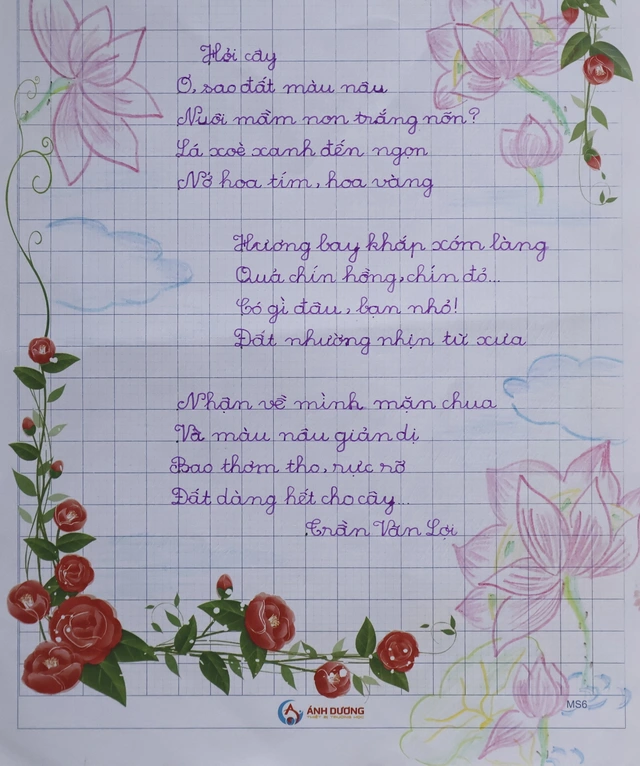 Hỏi cây
Ơ, sao đất màu nâu
Nuôi mầm non trắng nõn?
Lá xoè xanh đến ngọn
Nở hoa tím, hoa vàng
Hương bay khắp xóm làng
Quả chín hồng, chín đỏ...
Có gì đâu, bạn nhỏ!
Đất nhường nhịn từ xưa
Nhận về mình mặn chua
Và màu nâu giản dị
Bao thơm tho, rực rỡ
Đất dàng hết cho cây...
Trần Văn Lợi
ÁNH DƯƠNG
THIẾT BỊ TRƯỜNG HỌC
MS6